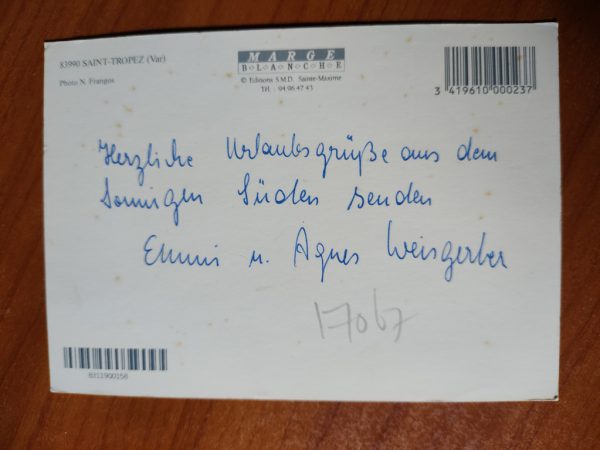 83990 SAINT-TROPEZ (Var)
Photo N. Frangos
MARGE
BLANCHE
© Editions S.M.D. Sainte-Maxime
Tél. : 94.96.47.43
3 419610 000237
Herzliche Urlaubsgrüße aus dem
Sonnigen Süden senden
u. Agnes Weisgerber
17067
8311900156